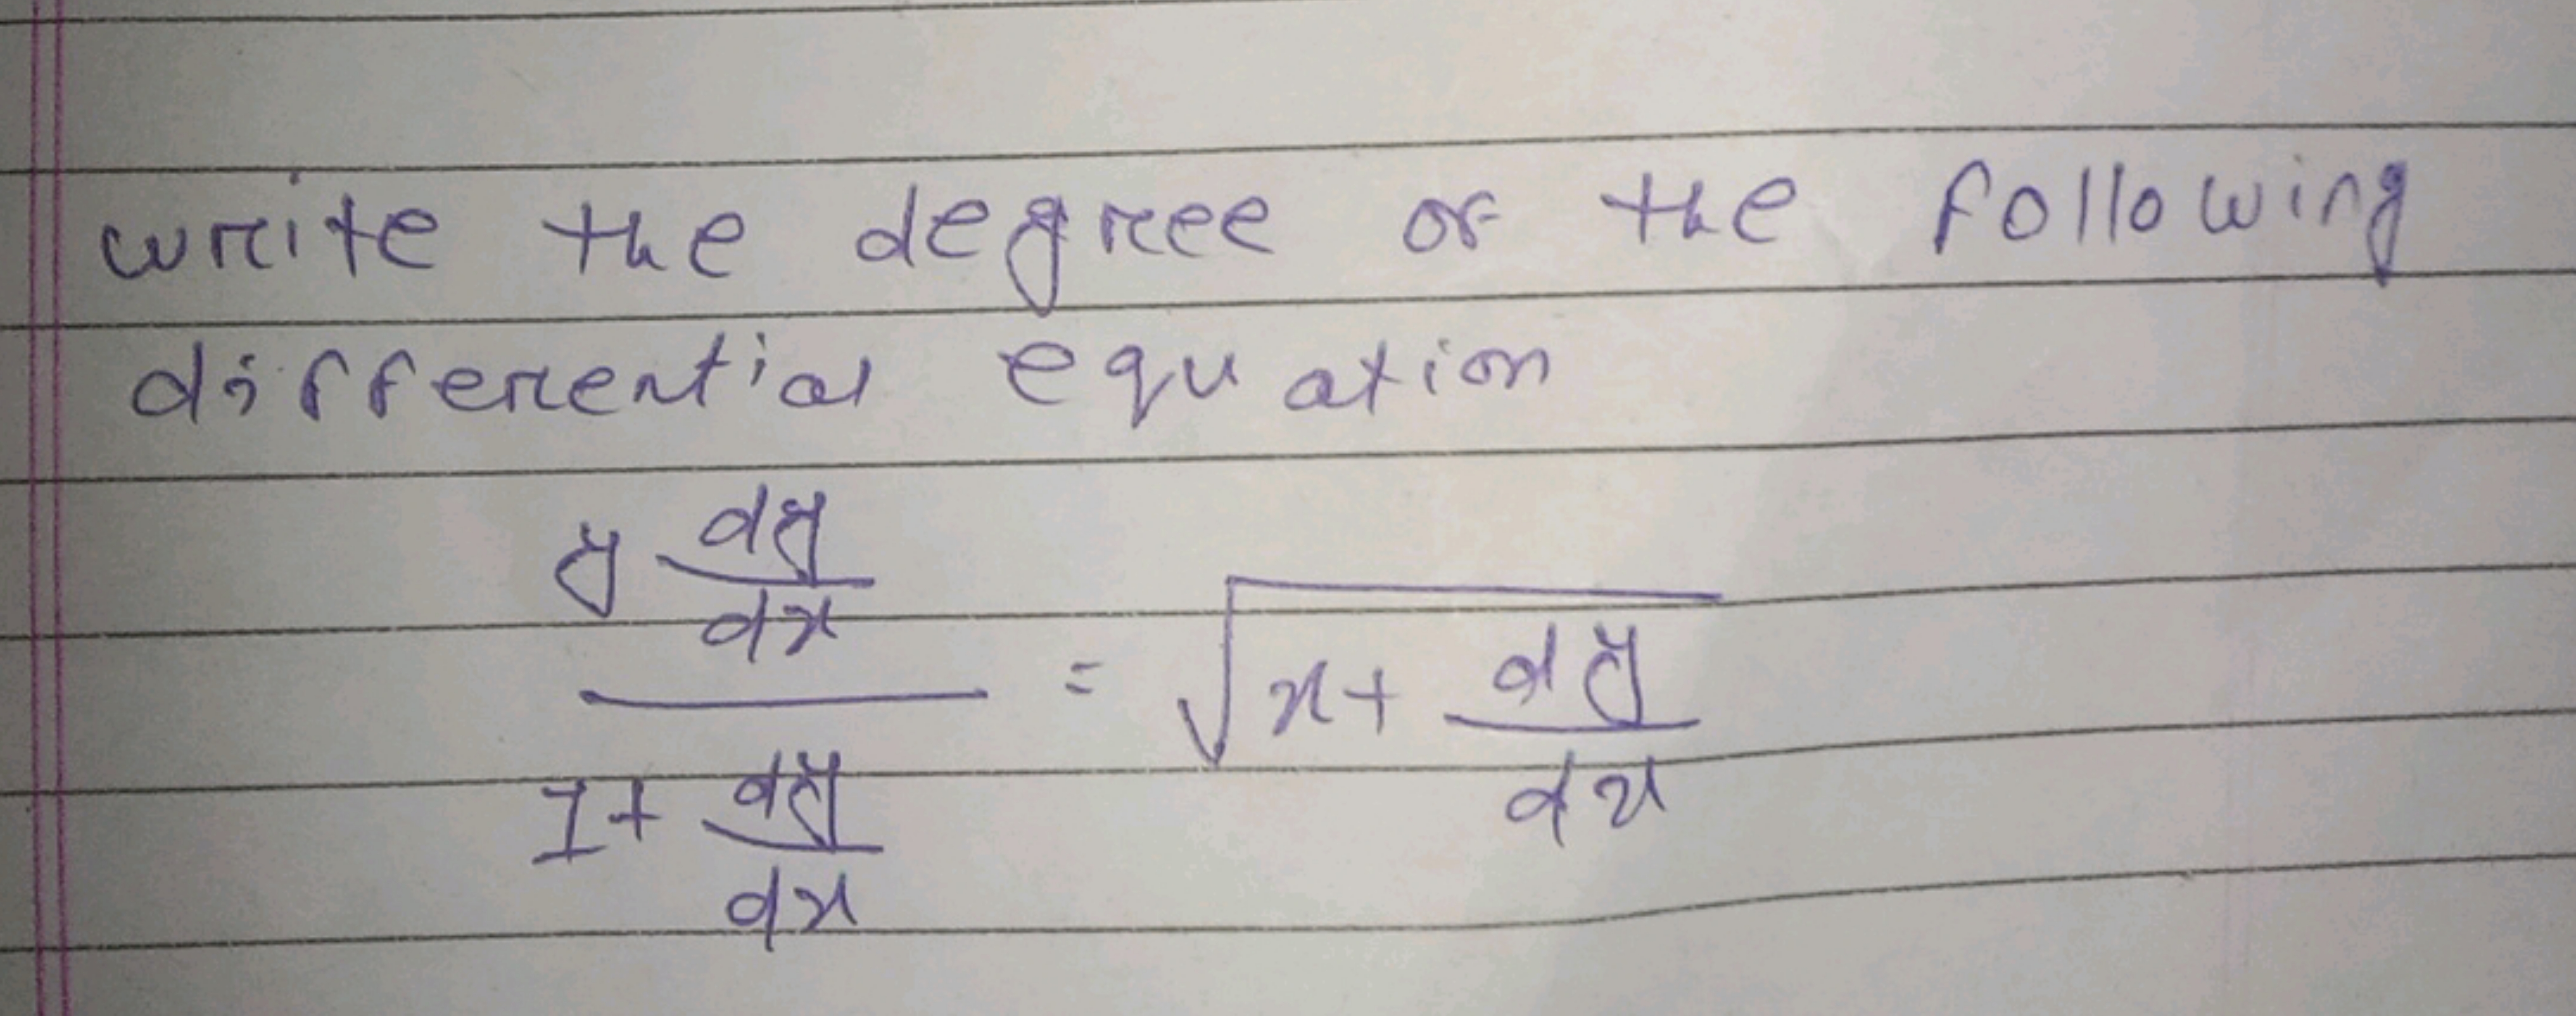 write the degree of the following
differential equation
y dy/dx / 1+ dy/dx = √x+ dy/dx